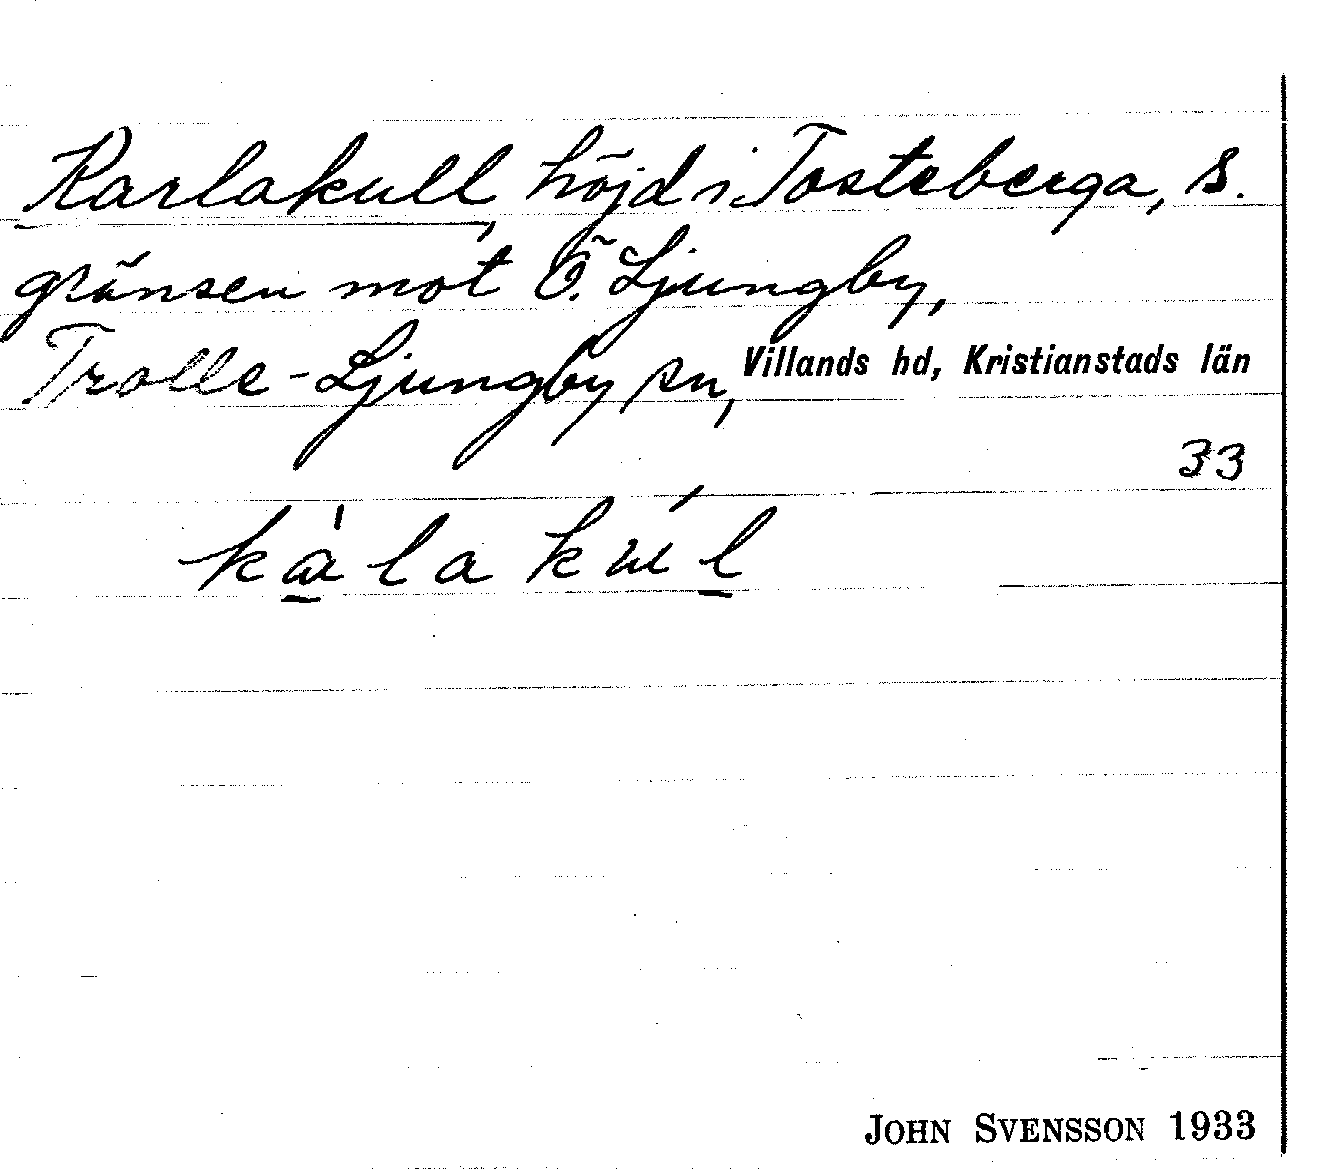 Karlakull, höjd i Tosteberga, s.
gränsen mot Ö. Ljungby,
Trolle-Ljungby sn, Villands hd, Kristianstads län
33
kàlakúl
JOHN SVENSSON 1933